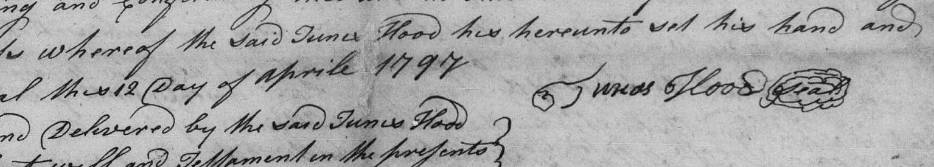 ing and
whereof the said Tunes Flood his hereunto set his hand and
al this 12 Day of Aprile 1797
Tunes Flood Seal
nd Delivered by the said Tunis Flood
t will and Testament in the presents